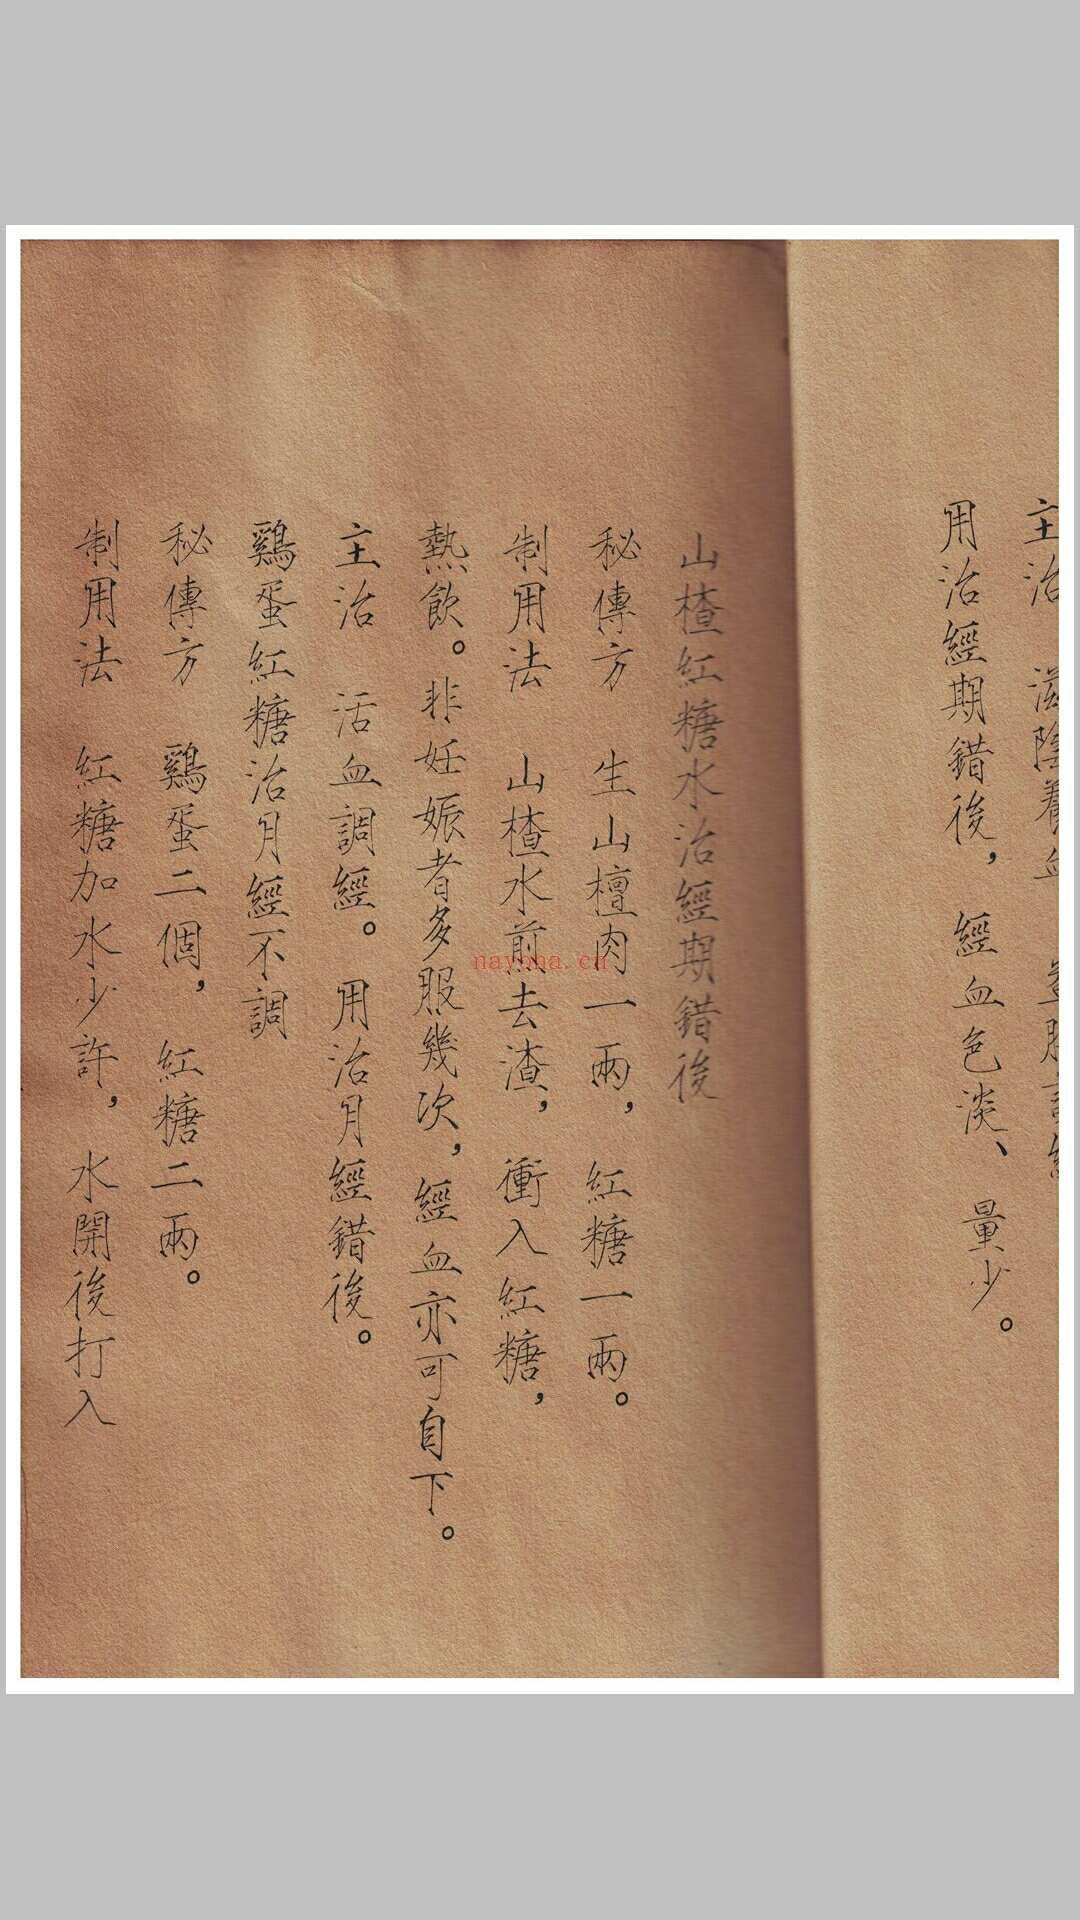 主治　滋陰養血
用治經期錯後，經血色淡、量少。
山楂紅糖水治經期錯後
秘傳方　生山檀肉一兩，紅糖一兩。
制用法　山楂水煎去渣，衝入紅糖，
熱飲。非妊娠者多服幾次，經血亦可自下。
主治　活血調經。用治月經錯後。
鷄蛋紅糖治月經不調
秘傳方　鷄蛋二個，紅糖二兩。
制用法　紅糖加水少許，水開後打入
nayona.cn